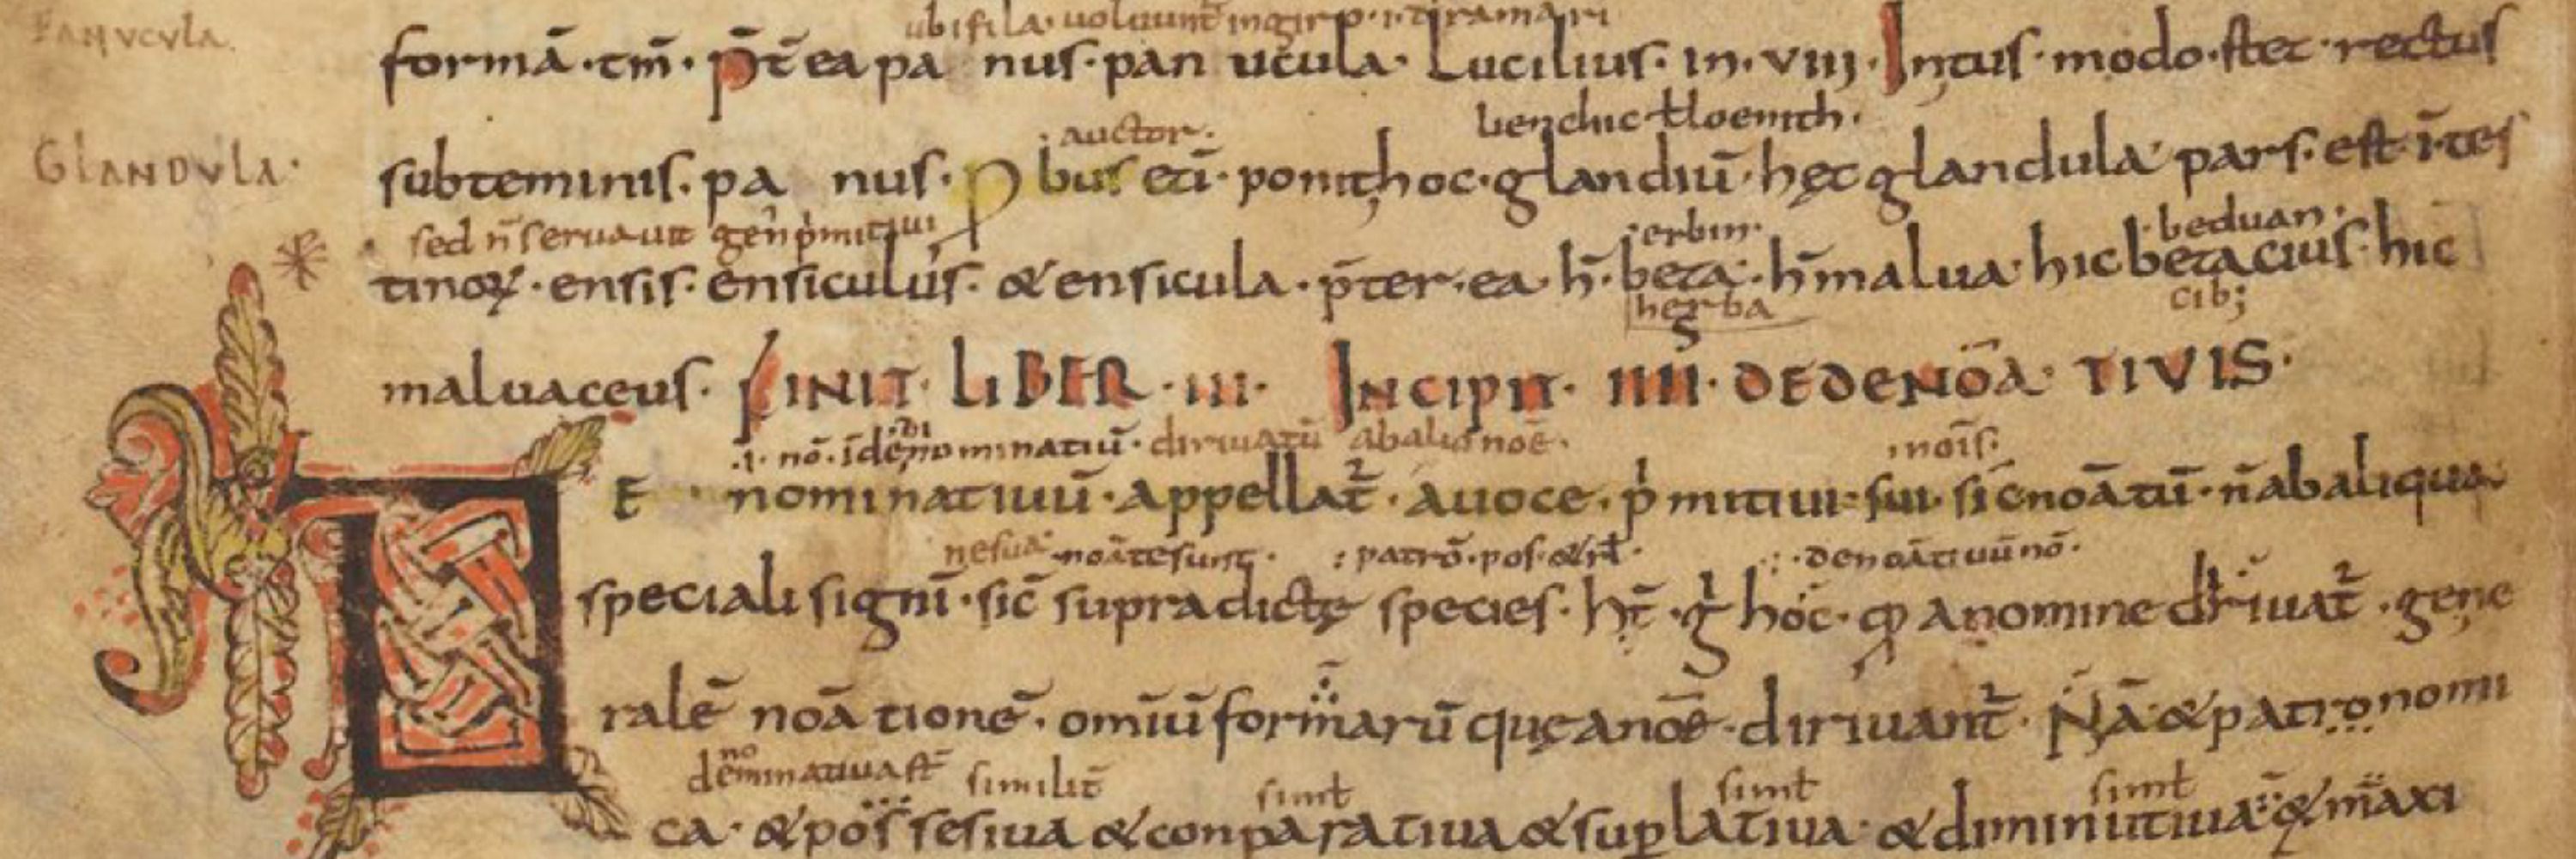 ubi fila · uoluunt in girū ·i· tiramari
Panucula
formā · tm̄ · p̄t̄ ea pa nus · pan ucula · Lucilius · in · viii · Intus · modo · stet · rectus
· auctor · lienchic t loemich ·
Glandula ·
subteminis · pa nus · P bus etī · ponit hoc · glandiū · hęc glandula pars · est ītes
sed n̄ seruauit gen̄ p̍mitiui · erbin · · beduan ·
tinoꝝ · ensis · ensiculus · & ensicula · p̄ter · ea · h̄ · beta · h̄ malua · hic betacius · hic
herba cib;
maluaceus · FINIT · LIBER · III · INCIPIT · IIII · DE DENOĀ TIVIS ·
·i· nō · ī denominatiuū · diriuatū ab alio noē · · nois ·
E nominatiuū · appellat̄ · a uoce · p̍mitiui sui · sic̄ noātū · n̄ ab aliqua
noāte sunt · : patrō · pos · & rł · denoātiuū nō ·
speciali signi · sic̄ supradictę species · ht̄ · g̍ hoc · qđ a nomine diriuat̄ · gene
ralē noā tionē · omīū formarū quę a noē · diriuant̄ · Nā & patronomi
denominatiua st̄ similit̄ simt simt simt
ca · & possesiua & conparatiua & suꝑlatiua · & diminutiua & maxi